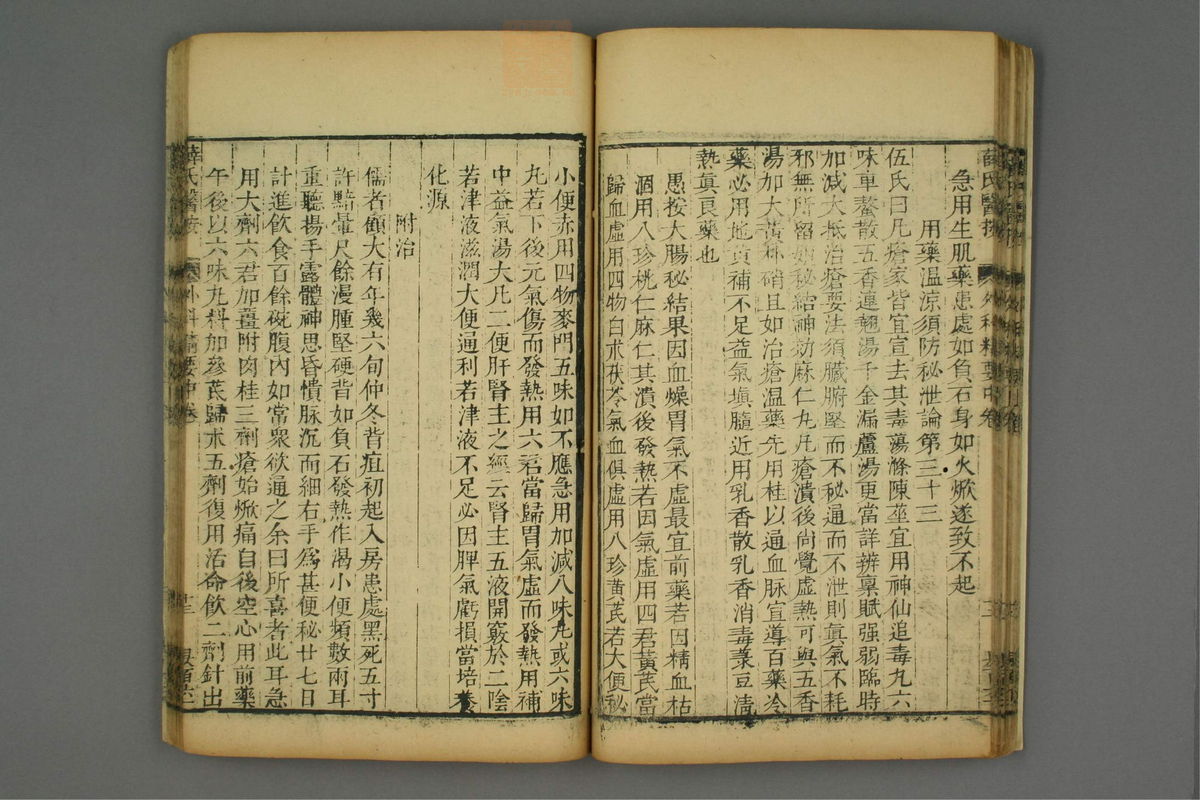 急用生肌藥患處如負石身如火焮遂致不起
用藥温涼須防秘泄論第三十三
伍氏曰凡瘡家皆宜宣去其毒蕩滌陳莝宜用神仙追毒丸六
味車螯散五香連翹湯千金漏蘆湯更當詳辨稟賦强弱臨時
加減大抵治瘡要法須臟腑堅而不秘通而不泄則眞氣不耗
邪無所留如秘結神効麻仁丸凡瘡潰後尙覺虛熱可與五香
湯加大黄朴硝且如治瘡温藥先用桂以通血脉宜導百藥冷
藥必用地黄補不足益氣塡髓近用乳香散乳香消毒菉豆淸
熱眞良藥也
愚按大腸秘結果因血燥胃氣不虛最宜前藥若因精血枯
涸用八珍桃仁麻仁其潰後發熱若因氣虛用四君黄芪當
歸血虛用四物白朮茯苓氣血俱虛用八珍黄芪若大便秘
小便赤用四物麥門五味如不應急用加減八味丸或六味
丸若下後元氣傷而發熱用六君當歸胃氣虛而發熱用補
中益氣湯大凡二便肝腎主之經云腎主五液開竅於二陰
若津液滋潤大便通利若津液不足必因脾氣虧損當培養
化源
附治
儒者顧大有年幾六旬仲冬背疽初起入房患處黑死五寸
許黯暈尺餘漫腫堅硬背如負石發熱作渴小便頻數兩耳
重聽揚手露體神思昏憒脉沉而細右手爲甚便秘廿七日
計進飮食百餘碗腹内如常衆欲通之余曰所喜者此耳急
用大劑六君加薑附肉桂三劑瘡始焮痛自後空心用前藥
午後以六味丸料加參芪歸朮五劑復用活命飮二劑針出
薛氏醫按
外科精要中卷